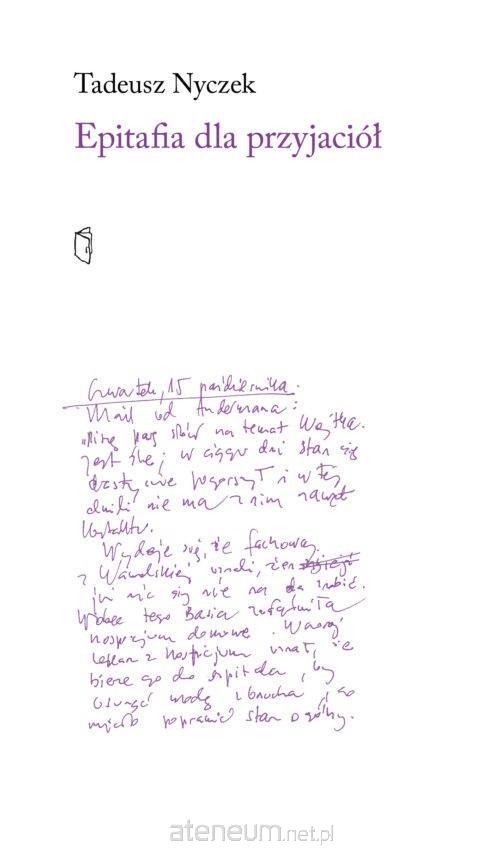 Tadeusz Nyczek
Epitafia dla przyjaciół
Czwartek, 15 października.
Mail od Andermana:
"Piszę parę słów na temat Wojtka.
Jest źle; w ciągu dni stan się
drastycznie pogorszył i w tej
chwili nie ma z nim nawet
kontaktu.
Wydaje się, że fachowcy
z Wawelskiej uznali, że
już nic się nie na da zrobić.
Wobec tego Basia załatwiła
hospicjum domowe. Wczoraj
lekarz z hospicjum uznał, że
bierze go do szpitala, by
usunąć wodę z brzucha, co
miało poprawić stan ogólny.
ateneum.net.pl